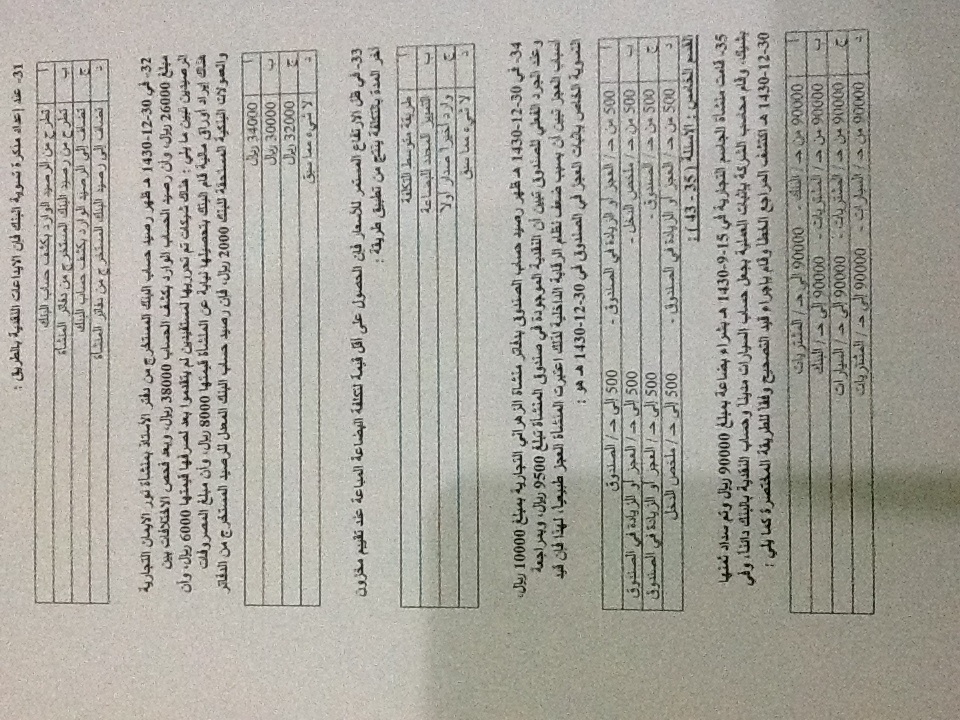 31- عند اعداد مذكرة تسوية البنك فإن الايداعات النقدية بالطريق :
أ تطرح من الرصيد الوارد بكشف حساب البنك
ب تطرح من رصيد البنك المستخرج من دفاتر المنشأة
ج تضاف إلى الرصيد الوارد بكشف حساب البنك
د تضاف إلى رصيد البنك المستخرج من دفاتر المنشأة
32- في 30-12-1430 هـ ظهر رصيد حساب البنك المستخرج من دفتر الأستاذ بمنشأة نور الايمان التجارية
مبلغ 26000 ريال، وأن رصيد الحساب الوارد بكشف الحساب 38000 ريال، وبعد فحص الاختلافات بين
الرصيدين تبين ما يلي : هناك شيكات تم تحريرها لمستفيدين لم يتقدموا بعد لصرفها قيمتها 6000 ريال، وأن
هناك إيراد أوراق مالية قام البنك بتحصيلها نيابة عن المنشأة قيمتها 8000 ريال، وأن مبلغ المصروفات
والعمولات البنكية المستحقة للبنك 2000 ريال، فإن رصيد حساب البنك المعدل للرصيد المستخرج من الدفاتر
أ 34000 ريال
ب 30000 ريال
ج 32000 ريال
د لا شيء مما سبق
33- في ظل الارتفاع المستمر للأسعار فإن الحصول على أقل قيمة لتكلفة البضاعة المباعة عند تقييم مخزون
آخر المدة بالتكلفة ينتج من تطبيق طريقة :
أ طريقة متوسط التكلفة
ب التمييز المحدد للبضاعة
ج وارد أخيرا صادر أولا
د لا شيء مما سبق
34- في 30-12-1430 هـ ظهر رصيد حساب الصندوق بدفاتر منشأة الزهراني التجارية بمبلغ 10000 ريال،
وعند الجرد الفعلي للصندوق تبين أن النقدية الموجودة في صندوق المنشأة تبلغ 9500 ريال، وبمراجعة
أسباب العجز تبين أن بسبب ضعف نظام الرقابة الداخلية لذلك اعتبرت المنشأة العجز طبيعيا، لهذا فإن قيد
التسوية الخاص بإثبات العجز في الصندوق في 30-12-1430 هـ هو :
أ 500 من حـ / العجز أو الزيادة في الصندوق - 500 إلى حـ / الصندوق
ب 500 من حـ / ملخص الدخل - 500 إلى حـ / العجز أو الزيادة في الصندوق
ج 500 من حـ / الصندوق - 500 إلى حـ / العجز أو الزيادة في الصندوق
د 500 من حـ / العجز أو الزيادة في الصندوق - 500 إلى حـ / ملخص الدخل
القسم الخامس : الأسئلة ( 35 - 43 ) :
35- قامت منشأة الجاسم التجارية في 15-9-1430 هـ بشراء بضاعة بمبلغ 90000 ريال وتم سداد ثمنها
بشيك، وقام محاسب الشركة بإثبات العملية بجعل حساب السيارات مدينا وحساب النقدية بالبنك دائنا، وفي
30-12-1430 هـ اكتشف المراجع الخطأ وقام بإجراء قيد التصحيح وفقا للطريقة المختصرة كما يلي :
أ 90000 من حـ / البنك - 90000 إلى حـ / المشتريات
ب 90000 من حـ / المشتريات - 90000 إلى حـ / البنك
ج 90000 من حـ / المشتريات - 90000 إلى حـ / السيارات
د 90000 من حـ / السيارات - 90000 إلى حـ / المشتريات